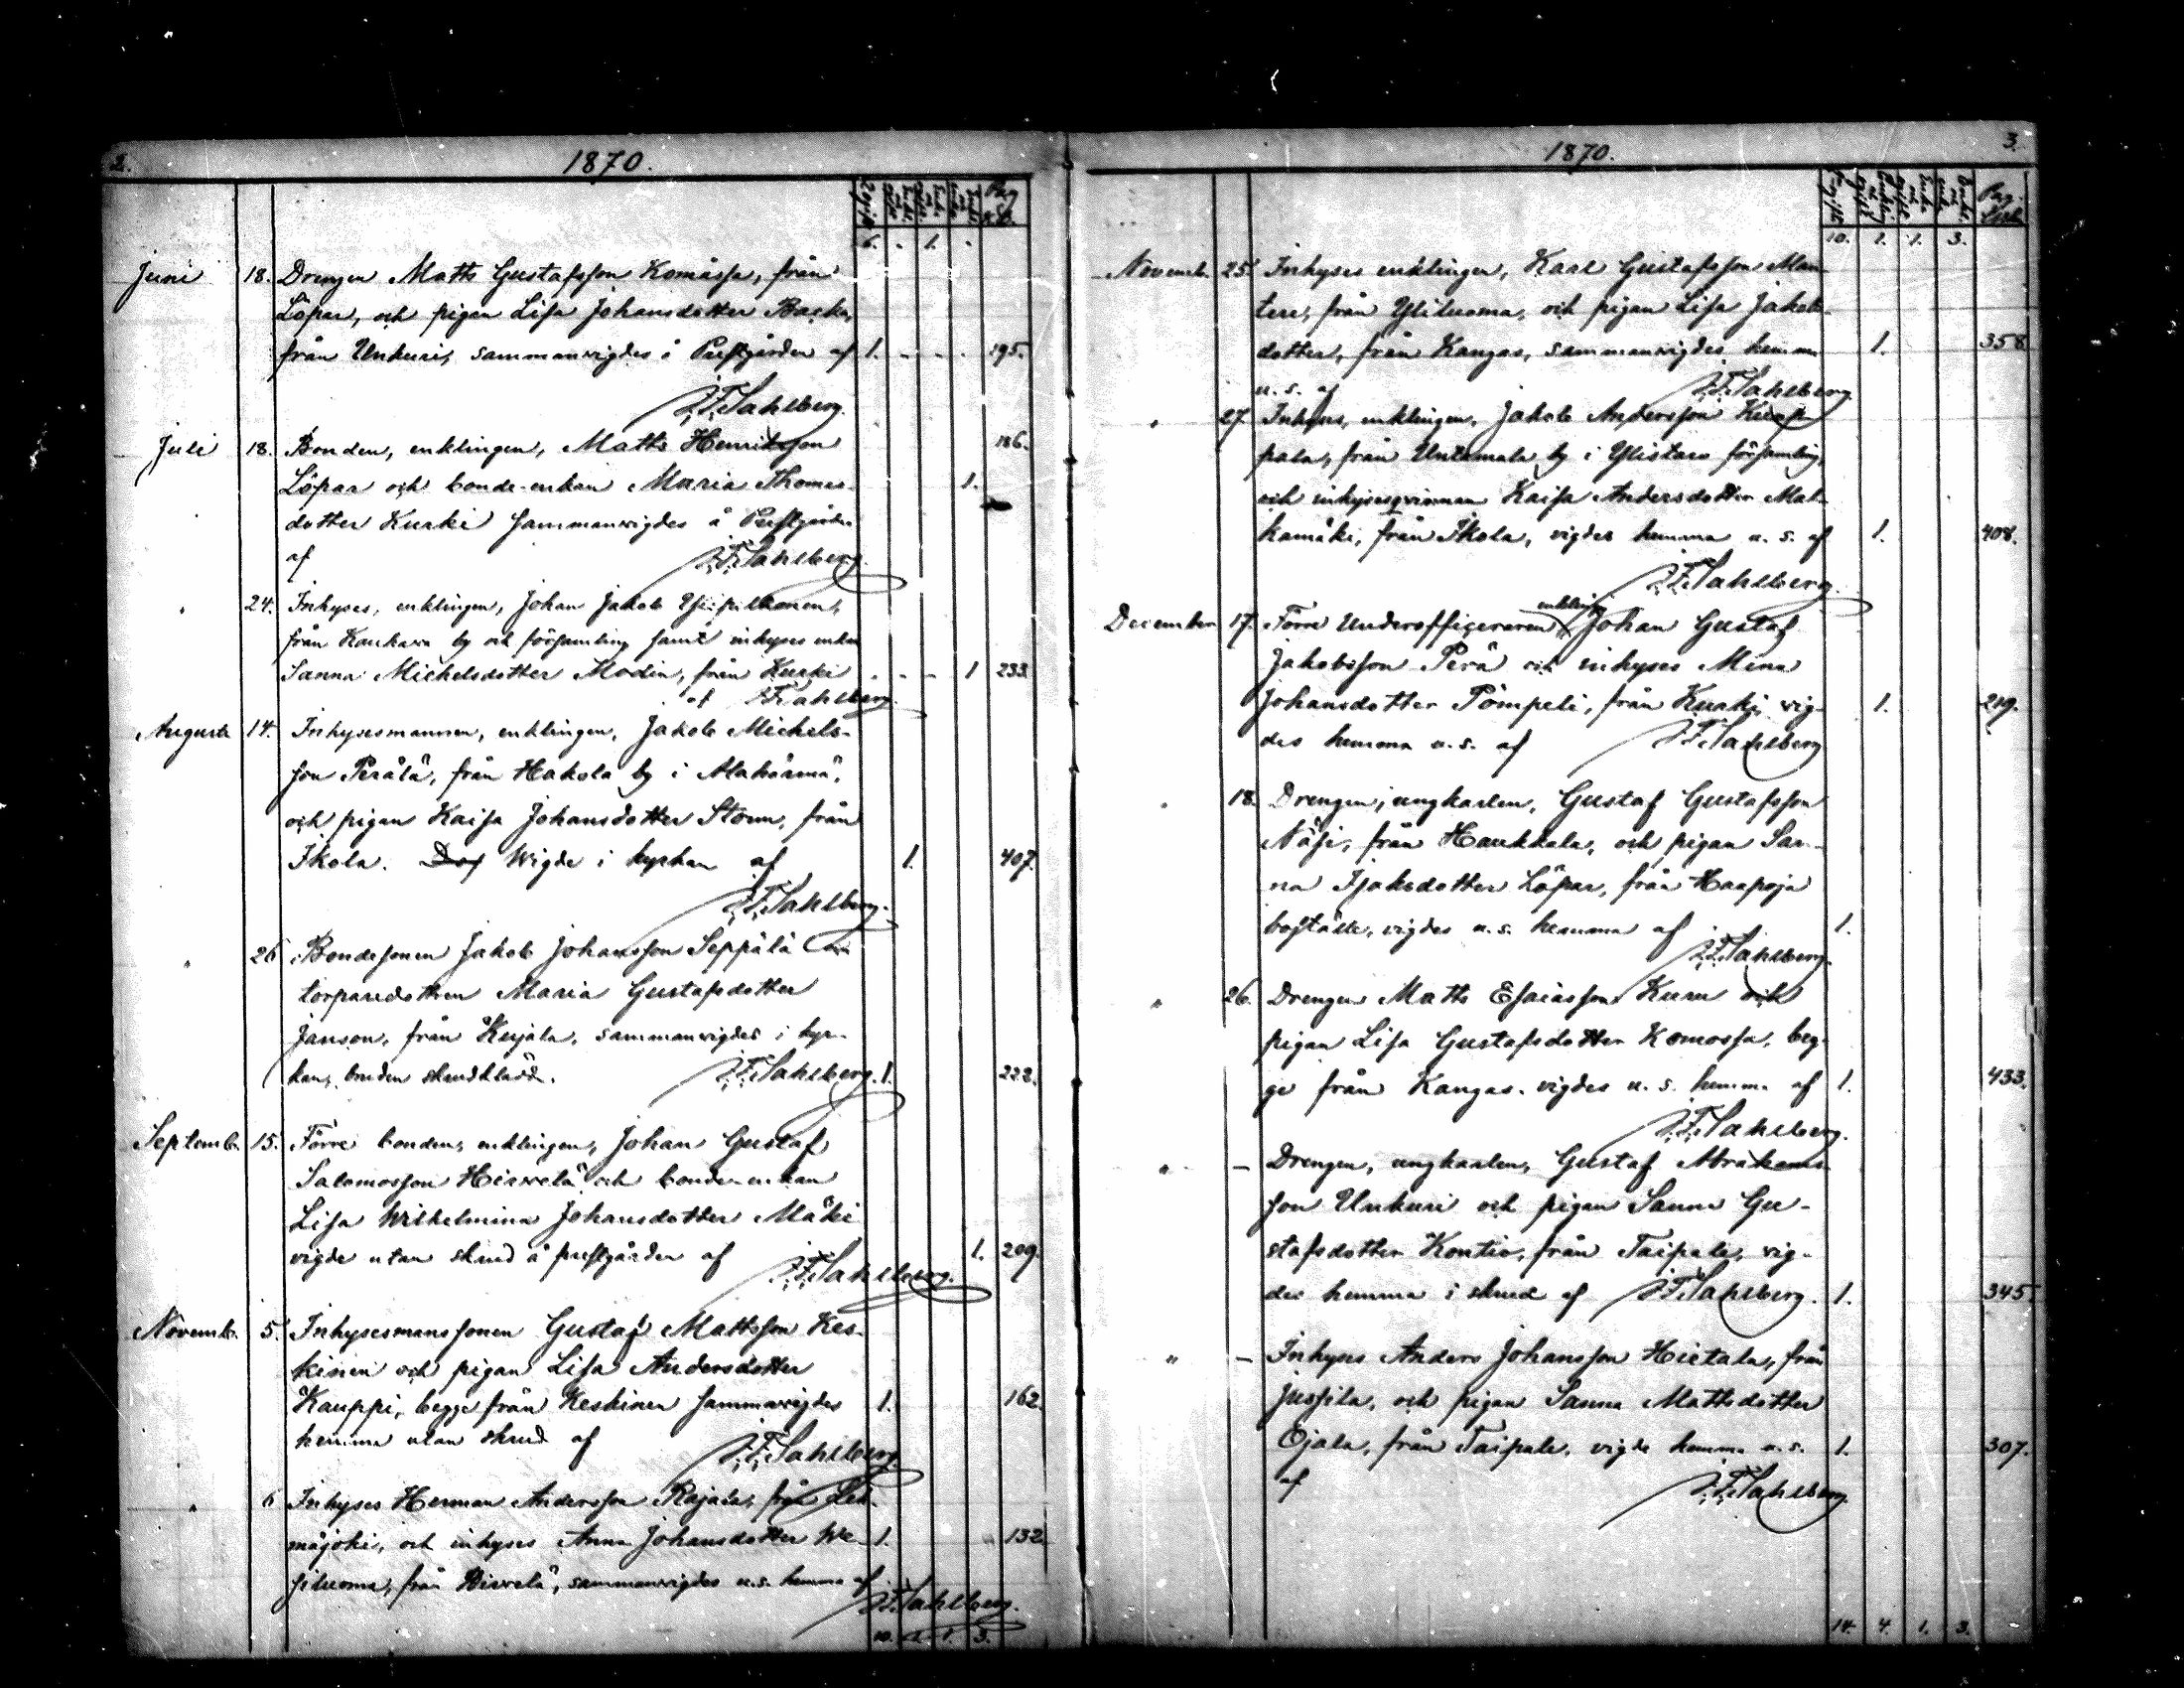 2.
1870.
Pag.
6. . 1. .
Juni 18. Drengen Matts Gustafsson Komåssa, från
Löpar, och pigan Lisa Johansdotter Backa,
från Unkuri, sammanvigdes å Prestgården af 1. . . . 195.
J. F. Sahlberg.
Juli 18. Bonden, enklingen, Matts Henriksson 186.
Löpar och bonde-enkan Maria Thomas- 1.
dotter Kurki sammanvigdes å Prestgården
af J. F. Sahlberg.
" 24. Inhyses, enklingen, Johan Jakob
från Kauhava by och församling samt inhyses enkan
Sanna Michelsdotter Modin, från Kurki . - - 1 233.
af J. F. Sahlberg.
Augusti 14. Inhysesmannen, enklingen, Jakob Michels-
son Perälä, från Hakola by i Alahärmä,
och pigan Kaisa Johansdotter Storm, från
Ikola. Wigde i kyrkan af 1. 407.
J. F. Sahlberg.
" 26 Bondesonen Jakob Johansson Seppälä
torparedottren Maria Gustafsdotter
Janson, från Kujala, sammanvigdes i kyr-
kan, bruden skrudklädd. J. F. Sahlberg. 1. 222.
Septemb. 15. Förre bonden, enklingen, Johan Gustaf
Salomosson Hirvelä och bonde-enkan
Lisa Wilhelmina Johansdotter Mäki
vigde utan skrud å prestgården af 1. 209.
J. F. Sahlberg.
Novemb. 5. Inhysesmanssonen Gustaf Mattsson Kes-
kinen och pigan Lisa Andersdotter
Kauppi, begge från Keskinen sammavigdes 1. 162.
hemma utan skrud af J. F. Sahlberg.
" 6 Inhyses Herman Andersson Rajala, från Leh-
mäjoki, och inhyses Anna Johansdotter We- 1. 132.
siluoma, från Hirvelä, sammanvigdes u.s. hemma af
J. F. Sahlberg.
10. 1. 1. 3.
1870.
3.
Pag.
10. 1. 1. 3.
Novemb. 25. Inhyses enklingen, Karl Gustafsson Man-
tere, från Yliluoma, och pigan Lisa Jakobs-
dotter, från Kangas, sammanvigdes hemma 1. 358
u. s. af J. F. Sahlberg.
" 27. Inhyses, enklingen, Jakob Andersson
pala, från Untamala by i Ylistaro församling,
och inhysesqvinnan Kaisa Andersdotter Mal-
kamäki, från Ikola, vigdes hemma u. s. af 1. 408.
J. F. Sahlberg.
enkling
December 17. Förre Underofficeraren, Johan Gustaf
Jakobsson Perä och inhyses Mina
Johansdotter Pömpeli, från Kurki, vig- 1. 219.
des hemma u. s. af J. F. Sahlberg
" 18. Drengen, ungkarlen, Gustaf Gustafsson
Näsi, från Haukkala, och pigan San-
na Isaksdotter Löpar, från Haapoja
boställe, vigdes u. s. hemma af 1.
J. F. Sahlberg.
" 26. Drengen Matts Esaiasson Kuru och
pigan Lisa Gustafsdotter Komossa, beg-
ge från Kangas. vigdes u. s. hemma af 1. 433.
J. F. Sahlberg.
" - Drengen, ungkarlen, Gustaf Abrahams-
son Unkuri och pigan Sanna Gu-
stafsdotter Kontio, från Taipale, vig-
des hemma i skrud af J. F. Sahlberg. 1. 345.
" - Inhyses Anders Johansson Hietala, från
Jussila, och pigan Sanna Mattsdotter
Ojala, från Taipale, vigde hemma u. s. 1. 307.
af J. F. Sahlberg.
14. 4. 1. 3.